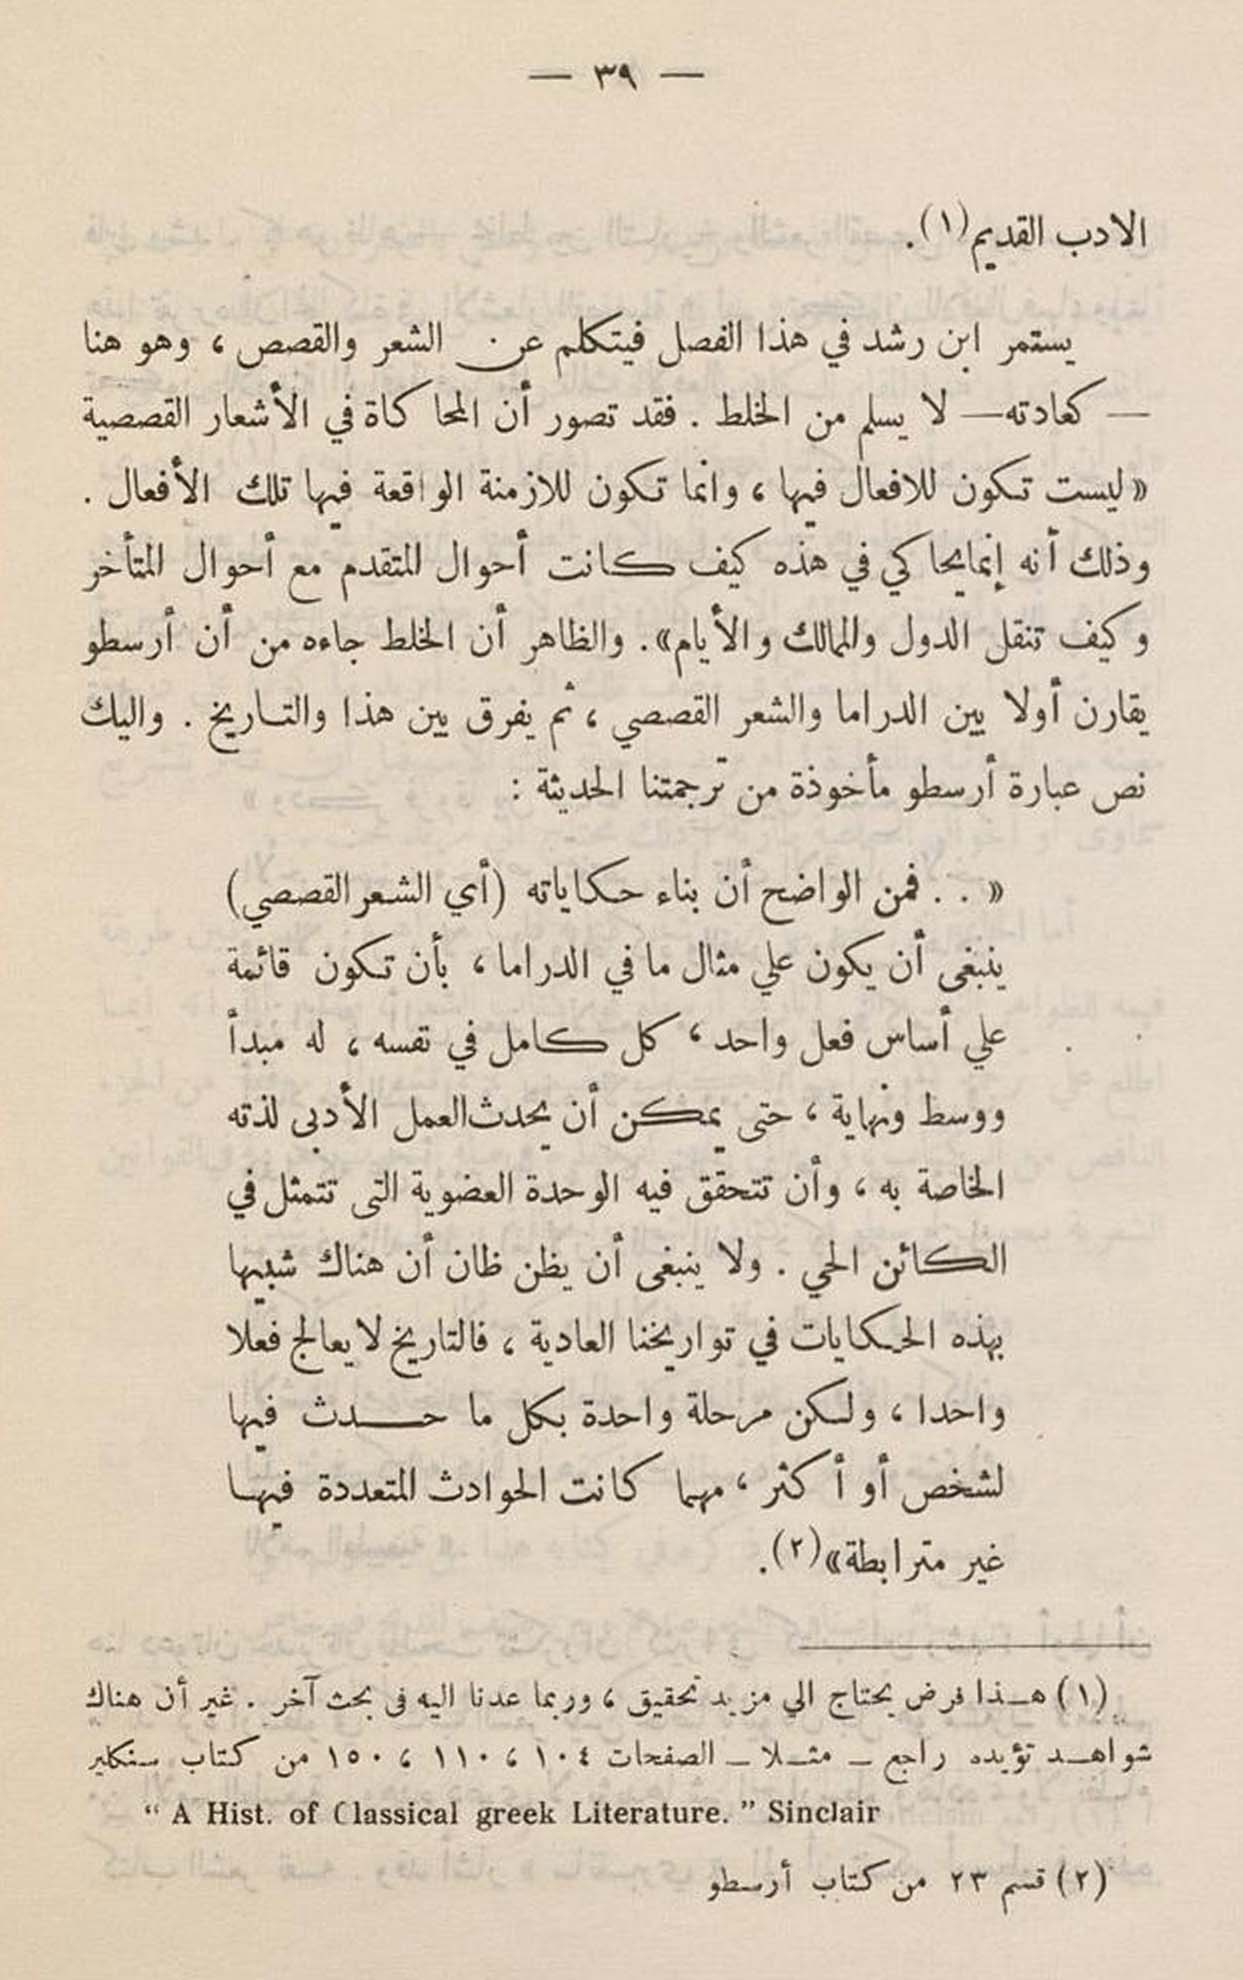 — ٣٩ —
الادب القديم(١).
يستمر ابن رشد في هذا الفصل فيتكلم عن الشعر والقصص ، وهو هنا
— كعادته — لا يسلم من الخلط . فقد تصور أن المحاكاة في الأشعار القصصية
« ليست تكون للافعال فيها ، وانما تكون للازمنة الواقعة فيها تلك الأفعال .
وذلك أنه إنما يحاكي في هذه كيف كانت أحوال المتقدم مع أحوال المتأخر
وكيف تنقل الدول والممالك والأيام » . والظاهر أن الخلط جاءه من أن أرسطو
يقارن أولا بين الدراما والشعر القصصي ، ثم يفرق بين هذا والتاريخ . واليك
نص عبارة أرسطو مأخوذة من ترجمتنا الحديثة :
« . . فمن الواضح أن بناء حكاياته (أي الشعر القصصي)
ينبغى أن يكون علي مثال ما في الدراما ، بأن تكون قائمة
علي أساس فعل واحد ، كل كامل في نفسه ، له مبدأ
ووسط ونهاية ، حتى يمكن أن يحدث العمل الأدبى لذته
الخاصة به ، وأن تتحقق فيه الوحدة العضوية التى تتمثل في
الكائن الحي . ولا ينبغى أن يظن ظان أن هناك شبيها
بهذه الحكايات في تواريخنا العادية ، فالتاريخ لا يعالج فعلا
واحدا ، ولكن مرحلة واحدة بكل ما حدث فيها
لشخص أو أكثر ، مهما كانت الحوادث المتعددة فيها
غير مترابطة » (٢).
(١) هذا فرض يحتاج الي مزيد تحقيق ، وربما عدنا اليه فى بحث آخر . غير أن هناك
شواهد تؤيده راجع – مثلا – الصفحات ١٠٤ ، ١١٠ ، ١٥٠ من كتاب سنكلير
“ A Hist. of Classical greek Literature. ” Sinclair
(٢) قسم ٢٣ من كتاب أرسطو